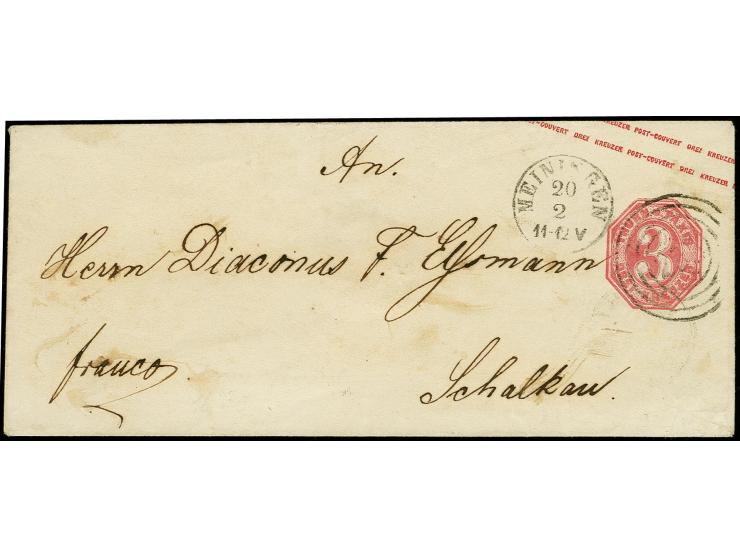 COUVERT DREI KREUZER POST-COUVERT DREI KREUZER
DREI KREUZER POST-COUVERT DREI KREUZER
An.
MEININGEN
20
2
11-12 V
Herrn Diaconus F. Eßomann
3
franco
Schalkau.